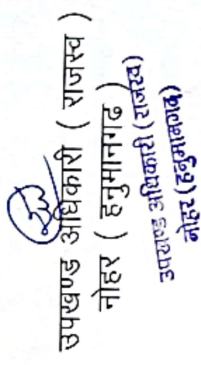 उपखण्ड अधिकारी ( राजस्व )
नोहर ( हनुमानगढ )
उपखण्ड अधिकारी (राजस्व)
नोहर (हनुमानगढ़)